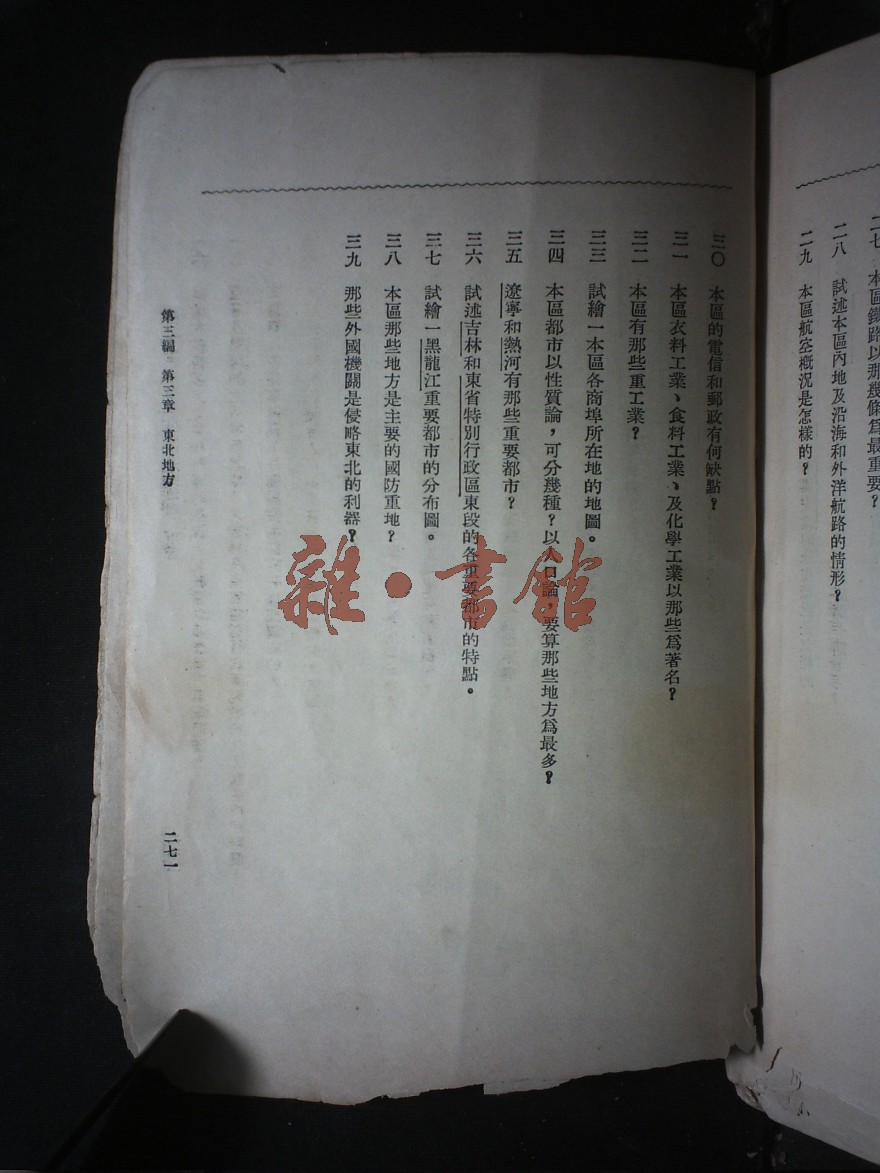 二七 本區鐵路以那幾條爲最重要？
二八 試述本區內地及沿海和外洋航路的情形？
二九 本區航空概況是怎樣的？
三〇 本區的電信和郵政有何缺點？
三一 本區衣料工業、食料工業、及化學工業以那些爲著名？
三二 本區有那些重工業？
三三 試繪一本區各商埠所在地的地圖。
三四 本區都市以性質論，可分幾種？以人口論，要算那些地方爲最多？
三五 遼寧和熱河有那些重要都市？
三六 試述吉林和東省特別行政區東段的各重要都市的特點。
三七 試繪一黑龍江重要都市的分布圖。
三八 本區那些地方是主要的國防重地？
三九 那些外國機關是侵略東北的利器？
第三編 第三章 東北地方
二七一
雜·書館